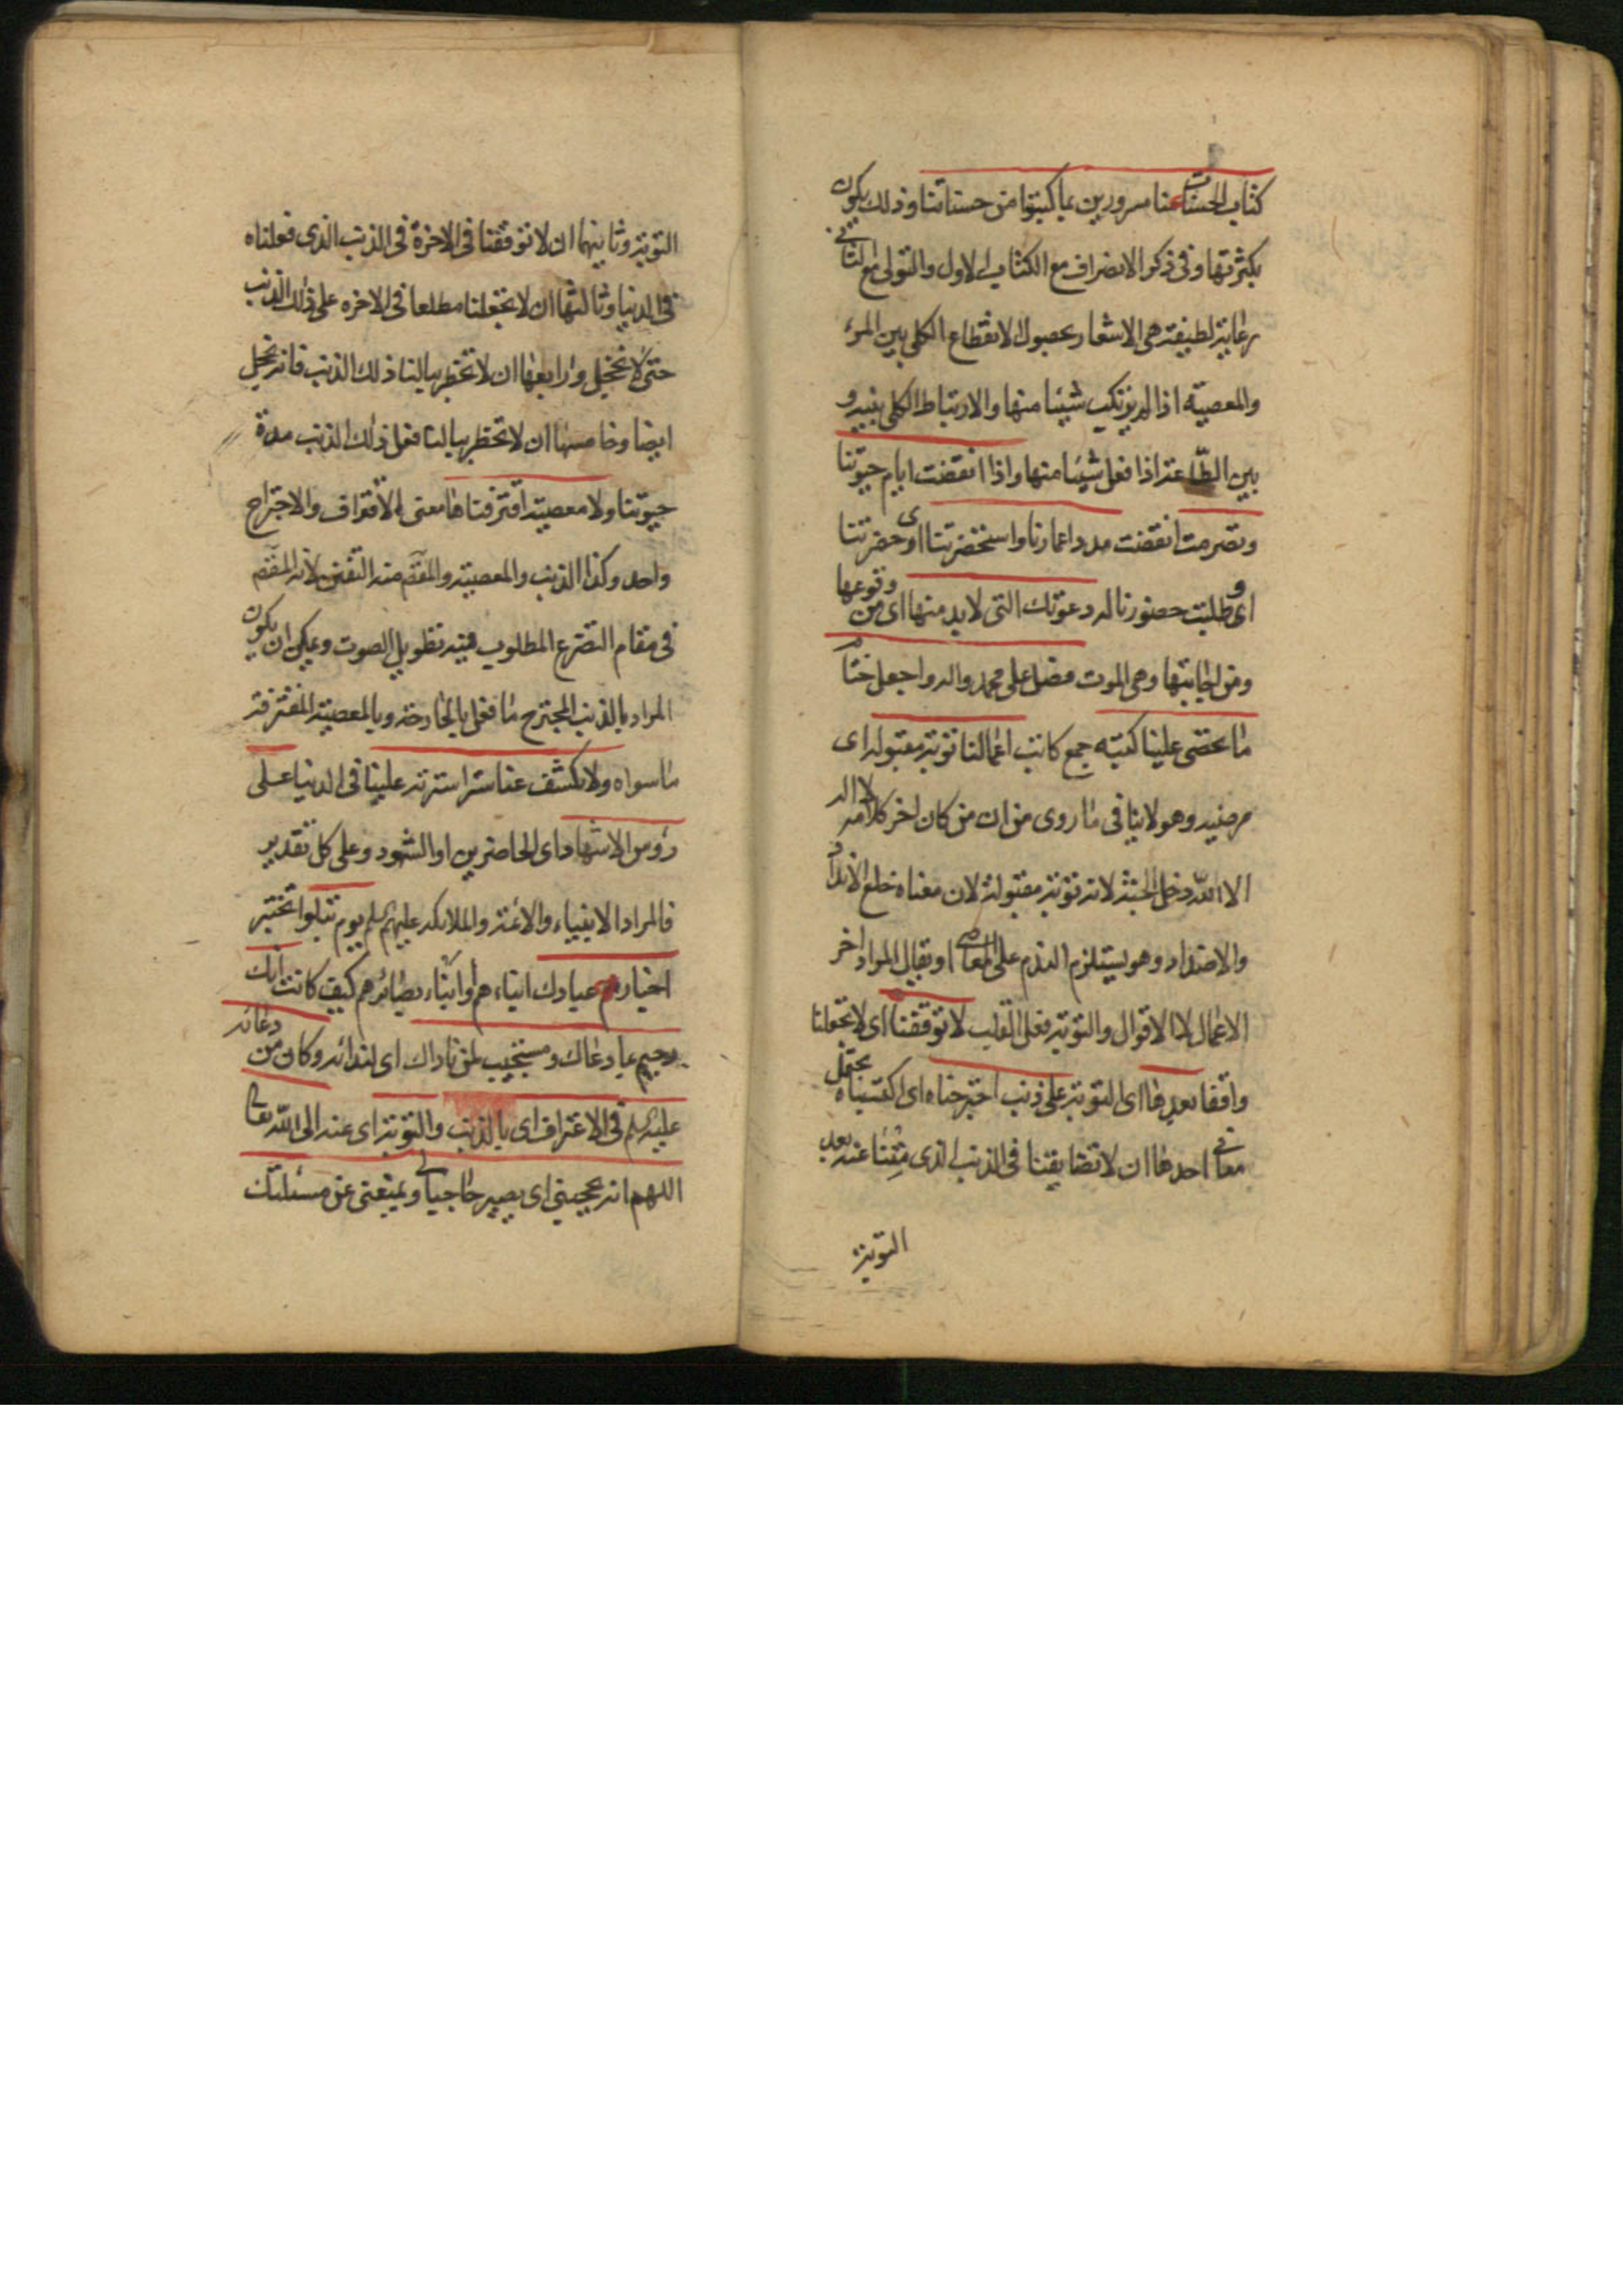 كتاب الحسنات عنا مسرورين بما كتبوا من حسناتنا وذلك يكون
بكثرتها وفى ذكر الانصراف مع الكتاب الاول والتولى مع الثانى
رعاية لطيفة هى الاشعار بحصول الانقطاع الكلى بين المرء
والمعصية اذا لم يرتكب شيئا منها والارتباط الكلى بينه و
بين الطاعة اذا فعل شيئا منها واذا انقضت ايام حيوتنا
وتصرمت انقضت مدد اعمارنا واستحضرتنا اى حضرتنا
اى و طلبت حضورنا له دعوتك التى لابد منها اى من وقوعها
ومن اجابتها وهى الموت فصل على محمد واله واجعل ختام
ما تحصى علينا كتبة جمع كاتب اعمالنا توبة مقبولة اى
مرضية وهو لاينافى ما روى من ان من كان اخر كلامه لا اله
الا الله دخل الجنة لانه توبة مقبولة لان معناه خلع الانداد
والاضداد وهو يستلزم الندم على المعاصى او يقال المراد اخر
الاعمال لا الاقوال والتوبة فعل القلب لا توقفنا اى لا تجعلنا
واقفا بعدها اى التوبة على ذنب اجترحناه اى اكتسبناه يحتمل
معانى احدها ان لا تضايقنا فى الذنب الذى تبنا عنه بعد
التوبة
التوبة وثانيها ان لا توقفنا فى الاخرة فى الذنب الذى فعلناه
فى الدنيا وثالثها ان لا تجعلنا مطلعا فى الاخره على ذلك الذنب
حتى لا نخجل ورابعها ان لا تخطر ببالنا ذلك الذنب فانه نخجل
ايضا وخامسها ان لا تخطر ببالنا فعل ذلك الذنب مدة
حيوتنا ولا معصية اقترفناها معنى الاقتراف والاجتراح
واحد وكذا الذنب والمعصية والمقصد منه التفنن لانه المقصد
فى مقام التضرع المطلوب فيه تطويل الصوت ويمكن ان يكون
المراد بالذنب المجترح ما فعل بالجارحة وبالمعصية المقترفة
ما سواه ولا تكشف عنا سترا سترته علينا فى الدنيا على
رؤس الاشهاد اى الحاضرين او الشهود وعلى كل تقدير
فالمراد الانبياء والائمة والملائكة عليهم السلم يوم تبلوا تختبر
اخبار عبادك انباءهم وانباء بصائرهم كيف كانت انك
رحيم بمن دعاك ومستجيب لمن ناداك اى لندائه وكان من دعائه
عليه السلم فى الاعتراف اى بالذنب والتوبة اى عنه الى الله تعالى
اللهم انه يحجبنى اى يصير حاجبالى ويمنعنى عن مسئلتك